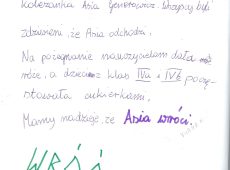 Koleżanka Asia Generowicz. Wszyscy byli
zdziwieni, że Asia odchodzi.
Na pożegnanie nauczycielom dała
róże, a dzieciom z klas IVa i IVb poczę-
stowała cukierkami.
Mamy nadzieję, że Asia wróci.
WRÓ